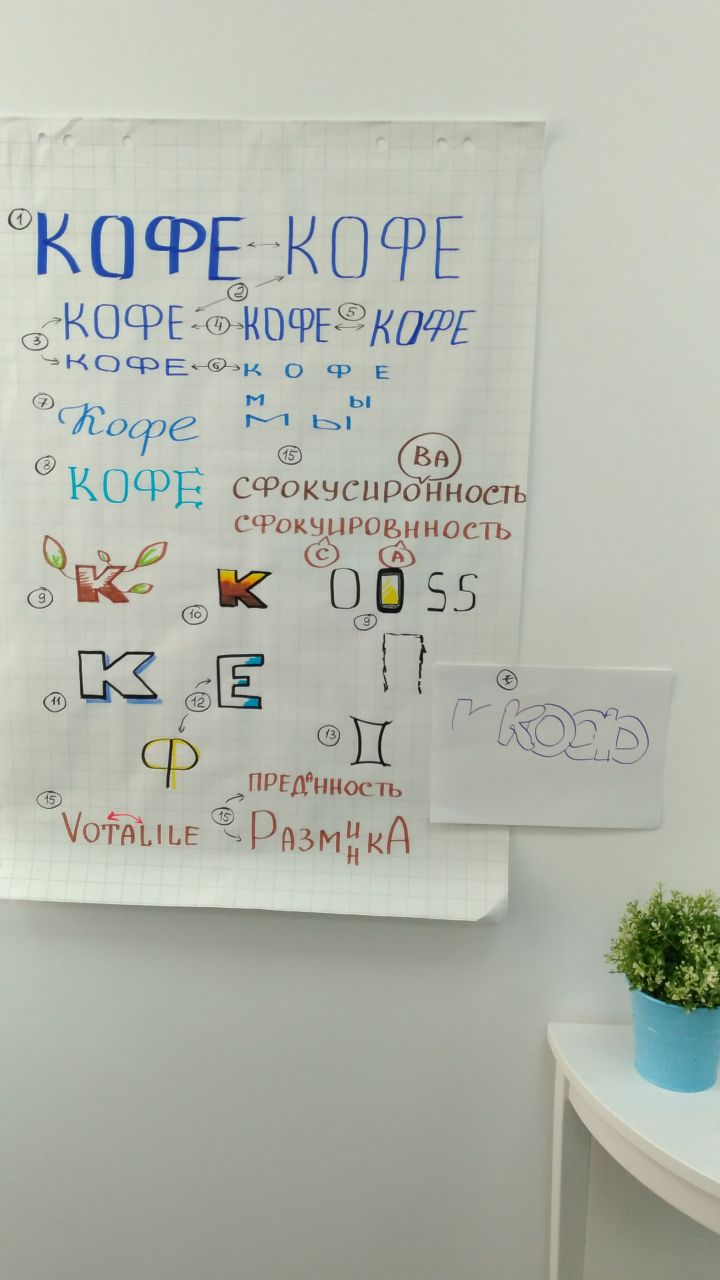 1 КОФЕ ↔ КОФЕ
2
3 КОФЕ ↔ 4 КОФЕ 5 КОФЕ
КОФЕ ↔ 6 К О Ф Е
7 Кофе М Ы
МЫ
15 ВА
8 КОФЕ СФОКУСИРОННОСТЬ
СФОКУИРОВННОСТЬ
С А
9 К 10 К O O S S
9
11 К 12 Е П
Ф 13
ПРЕДАННОСТЬ
15 VOTALILE 15 РАЗМИНКА
КОФ